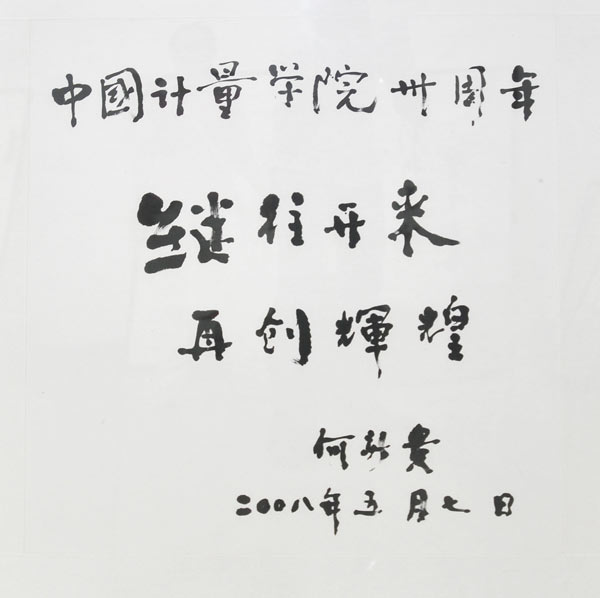 中國计量学院卅周年
继往开来
再创輝煌
何新贵
二〇〇八年五月七日